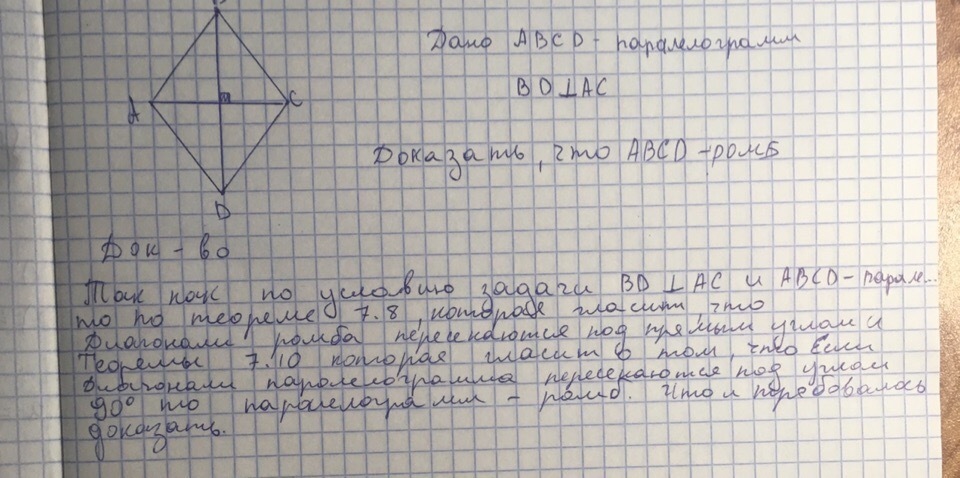 Дано ABCD - паралелограмм
BD⊥AC
A
C
D
Доказать, что ABCD - ромб
Док - во
Так как по условию задачи BD ⊥ AC и ABCD - парале...
то по теореме 7.8, которая гласит, что
Диагонали ромба пересекаются под прямым углом и
Теоремы 7.10 которая гласит о том, что если
диагонали паралелограмма пересекаются под углом
90° то паралелограмм - ромб. Что и
доказать.